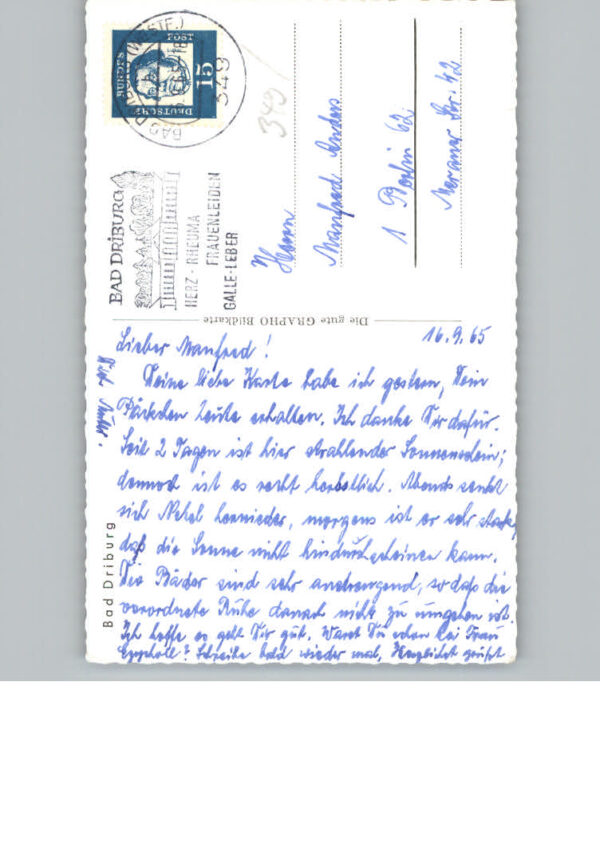 BAD DRIBURG (WESTF.)
349
DEUTSCHE
BUNDES
POST
15
BAD DRIBURG
HERZ - RHEUMA
FRAUENLEIDEN
GALLE-LEBER
349
Herrn
Manfred Anders
1 Berlin 62
Meraner Str. 42
Die gute GRAPHO Bildkarte
Bad Driburg
16.9.65
Lieber Manfred!
Deine liebe Karte habe ich gestern, Dein
Päckchen heute erhalten. Ich danke Dir dafür.
Seit 2 Tagen ist hier strahlender Sonnenschein;
dennoch ist es recht herbstlich. Abends senkt
sich Nebel hernieder, morgens ist er sehr stark,
daß die Sonne nicht hindurchscheinen kann.
Die Bäder sind sehr anstrengend, so daß die
verordnete Ruhe danach nicht zu umgehen ist.
Ich hoffe es geht Dir gut. Warst Du schon bei Frau
? Schreibe bald wieder mal. Herzlichst grüßt
Dich Mutter.